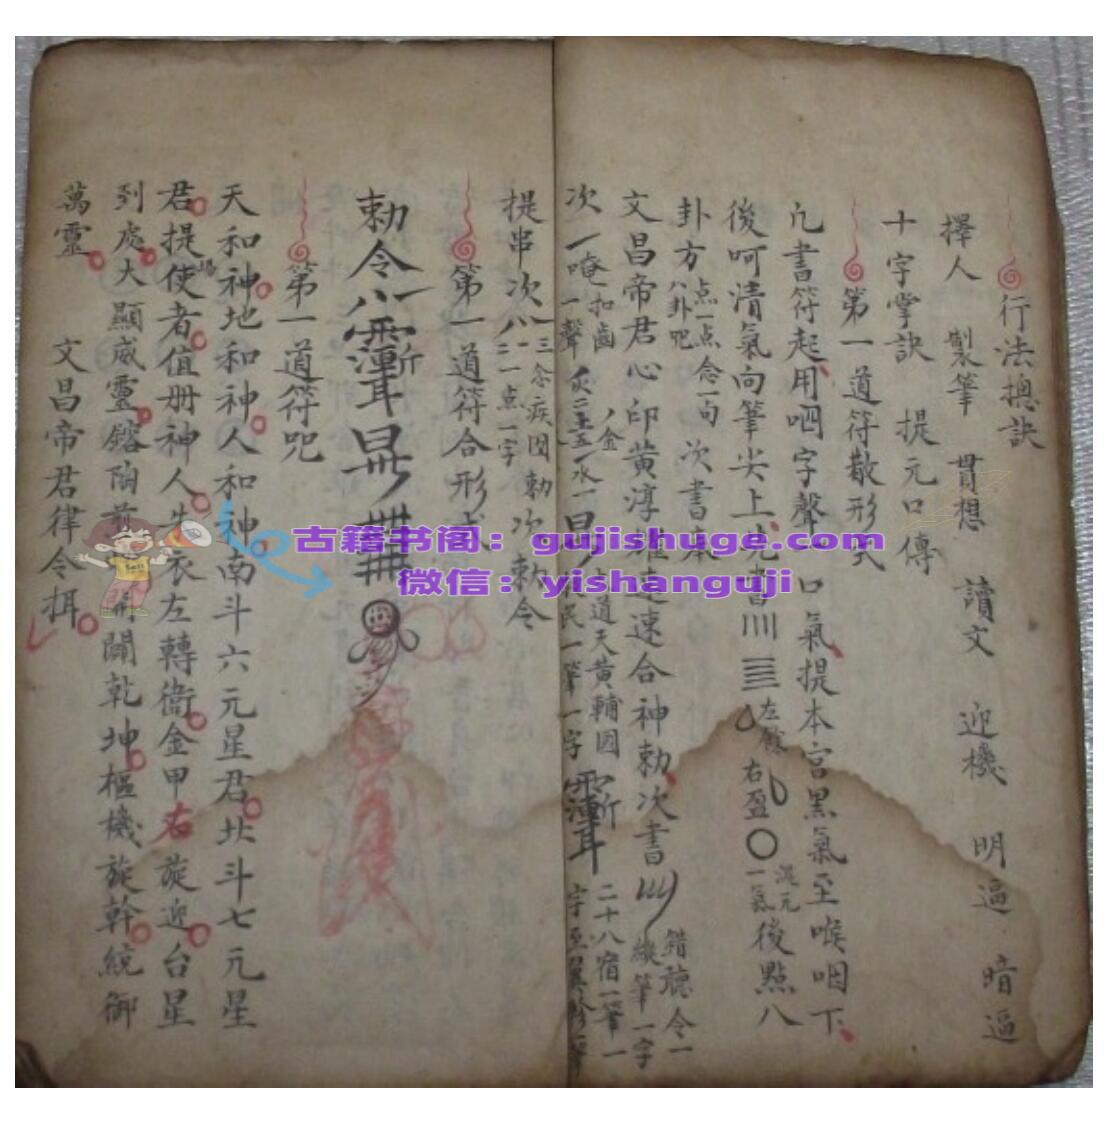 行法摠訣
擇人 製筆 貫想 讀文 迎機 明逼 暗逼
十字掌訣 提元口傳
第一道符散形式
凢書符起用咽字聲一口氣提本宮黑氣至喉咽下
後呵清氣向筆尖上先書川三左 右盈〇混元一氣後點八
卦方點一点念一句八卦咒次書本
文昌帝君心印黃淳 速合神勅次書 錯聽令一縱筆一字
次一唵扣齒一聲 道天黃輔国民一筆一字 二十八宿一筆一字至翼軫
提串次八 念疾囯勅次勅令
第一道符合形式
勅令
第一道符咒
天和神地和神人和神南斗六元星君北斗七元星
君提使者值册神人 衣左轉衞金甲右旋迎台星
到處大顯威靈 陶 開闢乾坤樞機旋幹統御
萬靈 文昌帝君律令
古籍书阁：gujishuge.com
微信：yishanguji